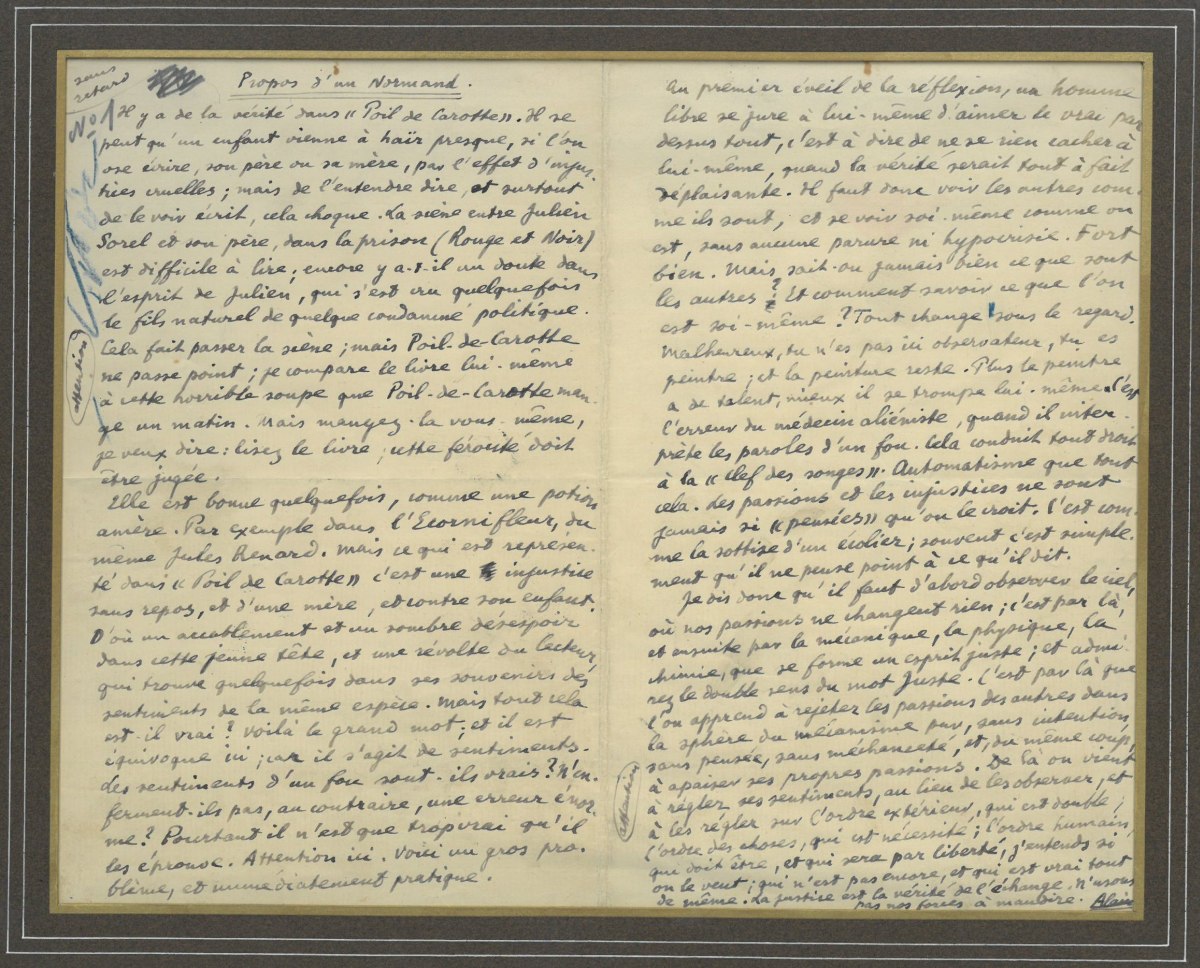 sans
retard
Propos d'un Normand.
No 1
Il y a de la vérité dans « Poil de Carotte ». Il se
peut qu'un enfant vienne à haïr presque, si l'on
ose écrire, son père ou sa mère, par l'effet d'injus-
tices cruelles ; mais de l'entendre dire, et surtout
de le voir écrit, cela choque. La scène entre Julien
Sorel et son père, dans la prison (Rouge et Noir)
est difficile à lire ; encore y a-t-il un doute dans
l'esprit de Julien, qui s'est cru quelquefois
le fils naturel de quelque condamné politique.
Cela fait passer la scène ; mais Poil-de-Carotte
ne passe point ; je compare le livre lui-même
à cette horrible soupe que Poil-de-Carotte man-
ge un matin. Mais mangez-la vous-même,
je veux dire : lisez le livre ; cette férocité doit
être jugée.
attention
Elle est bonne quelquefois, comme une potion
amère. Par exemple dans l'Ecornifleur, du
même Jules Renard. Mais ce qui est représen-
té dans « Poil de Carotte » c'est une injustice
sans repos, et d'une mère, et contre son enfant.
D'où un accablement et un sombre désespoir
dans cette jeune tête, et une révolte du lecteur,
qui trouve quelquefois dans ses souvenirs des
sentiments de la même espèce. Mais tout cela
est-il vrai ? Voilà le grand mot ; et il est
équivoque ici ; car il s'agit de sentiments.
des sentiments d'un fou sont-ils vrais ? N'en-
ferment-ils pas, au contraire, une erreur énor-
me ? Pourtant il n'est que trop vrai qu'il
les éprouve. Attention ici. Voici un gros pro-
blème, et immédiatement pratique.
Au premier éveil de la réflexion, un homme
libre se jure à lui-même d'aimer le vrai par
dessus tout, c'est à dire de ne se rien cacher à
lui-même, quand la vérité serait tout à fait
déplaisante. Il faut donc voir les autres com-
me ils sont, et se voir soi-même comme on
est, sans aucune parure ni hypocrisie. Fort
bien. Mais sait-on jamais bien ce que sont
les autres ? Et comment savoir ce que l'on
est soi-même ? Tout change sous le regard.
Malheureux, tu n'es pas ici observateur, tu es
peintre ; et la peinture reste. Plus le peintre
a de talent, mieux il se trompe lui-même. C'est
l'erreur du médecin aliéniste, quand il inter-
prète les paroles d'un fou. Cela conduit tout droit
à la « Clef des songes ». Automatisme que tout
cela. Les passions et les injustices ne sont
jamais si « pensées » qu'on le croit. C'est com-
me la sottise d'un écolier ; souvent c'est simple-
ment qu'il ne pense point à ce qu'il dit.
Je dis donc qu'il faut d'abord observer le ciel,
où nos passions ne changent rien ; c'est par là,
et ensuite par la mécanique, la physique, la
chimie, que se forme un esprit juste ; et admi-
rez le double sens du mot Juste. C'est par là que
l'on apprend à rejeter les passions des autres dans
la sphère du mécanisme pur, sans intention,
sans pensée, sans méchanceté, et, du même coup,
à apaiser ses propres passions. De là on vient
à régler ses sentiments, au lieu de les observer, et
à les régler sur l'ordre extérieur, qui est double ;
l'ordre des choses, qui est nécessité ; l'ordre humain,
qui doit être, et qui sera par liberté, j'entends si
on le veut ; qui n'est pas encore, et qui est vrai tout
de même. La justice est la vérité de l'échange. N'usons
pas nos forces à maudire. Alain
attention